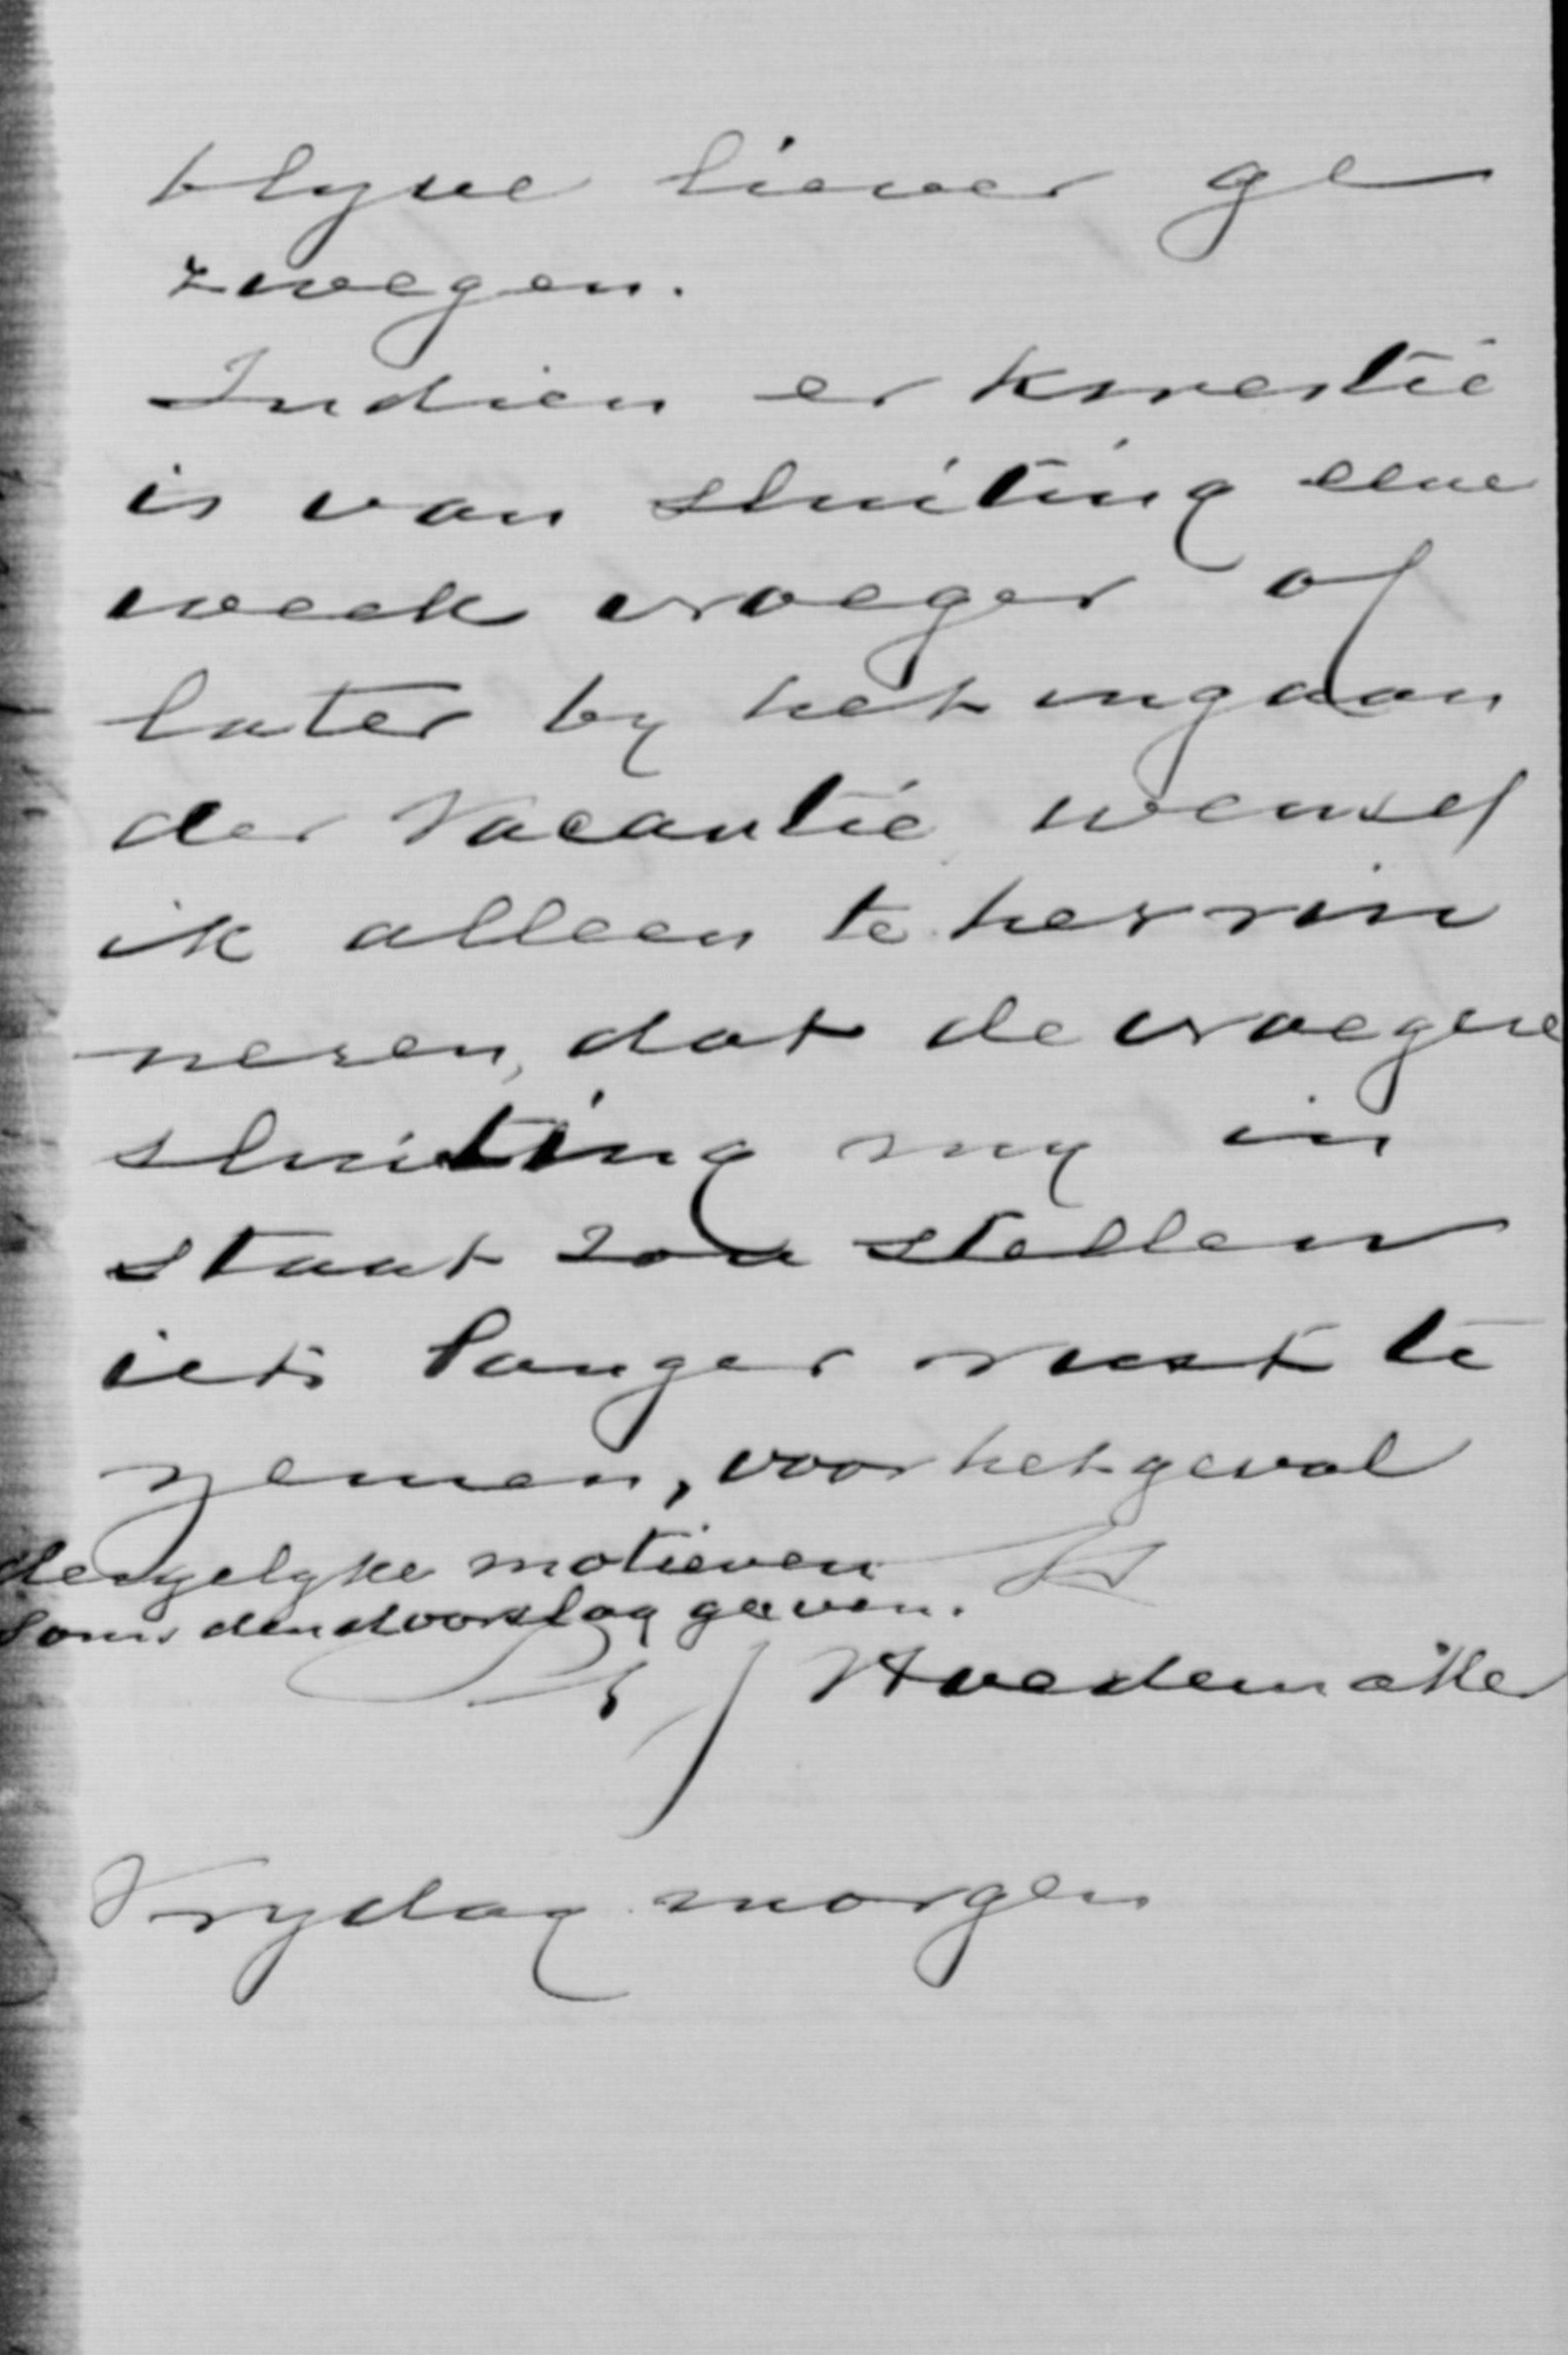 blyve liever ge
zwegen.
Indien er kwestie
is van sluiting eene
week vroeger of
later by het ingaan
der Vacantie wensch
ik alleen te herrin
neren, dat de vroegere
sluiting my in
staat zou stellen
iets langer rust te
nemen, voor het geval
dergelyke motieven
soms den doorslag gaven.
Ph J Hoedemaker
Vrydag morgen